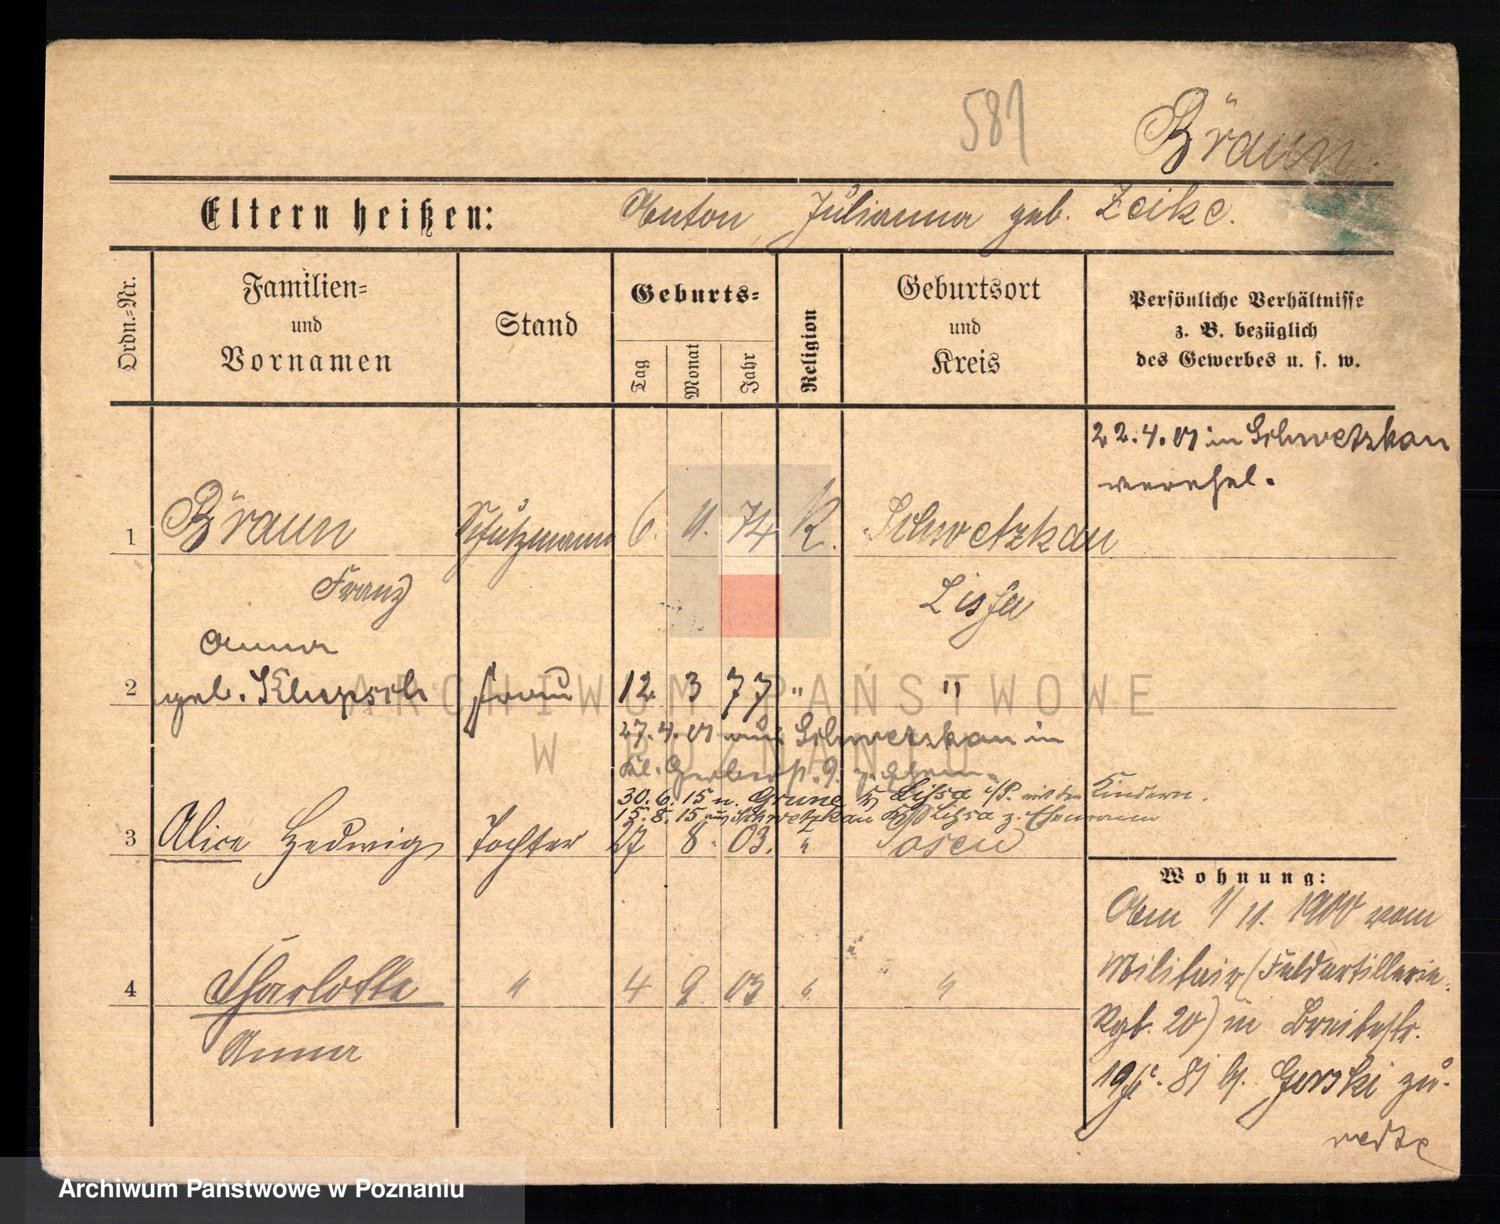 581
Bräun.
Eltern heißen: Anton, Julianna geb. Zeike.
Ordn.-Nr.
Familien- und Vornamen
Stand
Geburts-
Tag
Monat
Jahr
Religion
Geburtsort und Kreis
Persönliche Verhältnisse
z. B. bezüglich
des Gewerbes u. s. w.
22.4.01 in Schwetzkau
verehel.
1 Bräun Schutzmann 6. 11. 74 K. Schwetzkau
Franz Lissa
Anna
2 geb. Klupsch Frau 12. 3 77 " "
27.4.01 aus Schwetzkau in
Kl. Gerberst. 9.
30.6.15 n. Grune Lissa i/P. mit den Kindern.
15.8.15 aus Schwetzkau Lissa z. Ehemann
3 Alice Hedwig Tochter 27 8. 03. " Posen
Wohnung:
Am 1/11. 1900 vom
Militair (Feldartillerie-
Rgt. 20) in Breitestr.
19 b. Gorski zu-
4 Charlotte " 4 9. 03 " "
Anna
ARCHIWUM PAŃSTWOWE
W POZNANIU
Archiwum Państwowe w Poznaniu